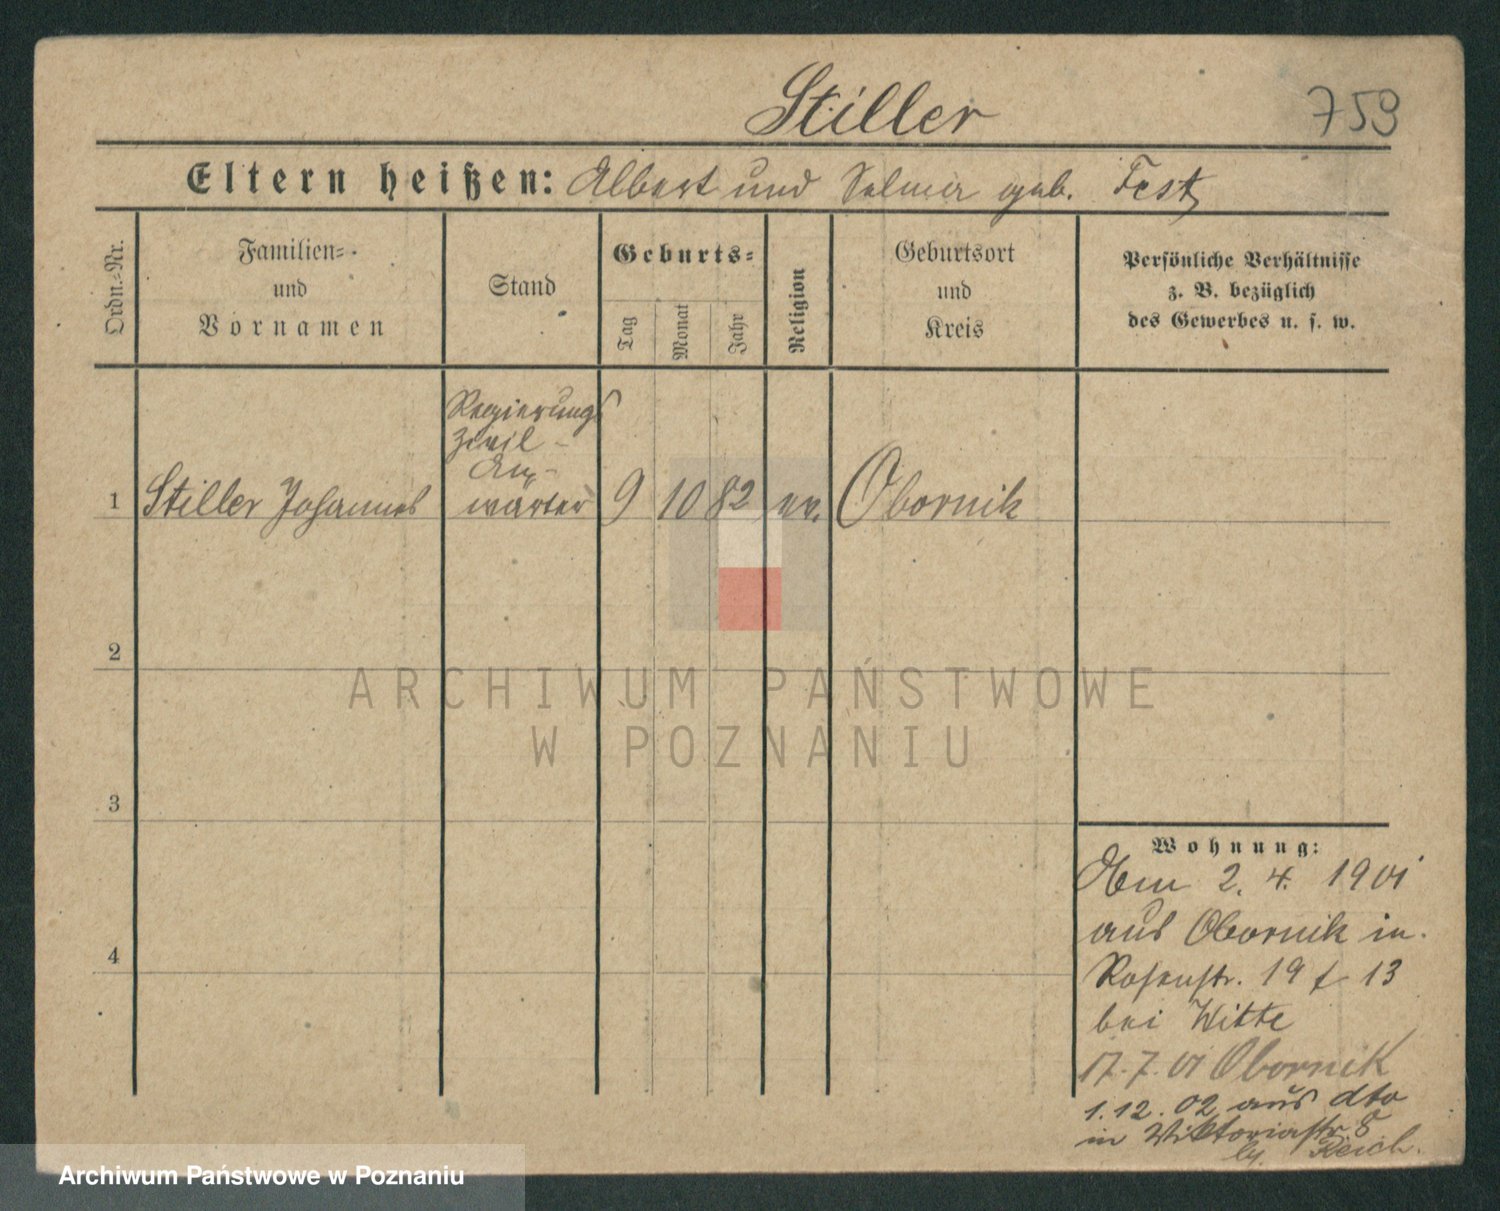 Stiller
759
Eltern heißen: Albert und Selma geb. Fest
Ordn.-Nr.
Familien- und Vornamen
Stand
Geburts-
Tag
Monat
Jahr
Religion
Geburtsort und Kreis
Persönliche Verhältnisse
z. B. bezüglich
des Gewerbes u. s. w.
Regierungs
Zivil-
An-
1 Stiller Johannes wärter 9 10 82 ev. Obornik
2
3
4
ARCHIWUM PAŃSTWOWE
W POZNANIU
Wohnung:
Am 2. 4. 1901
aus Obornik in
Rosenstr. 19 13
bei Witte
17.7.01 Obornik
1.12.02 aus dto
in Viktoriastr 8
Reich.
Archiwum Państwowe w Poznaniu